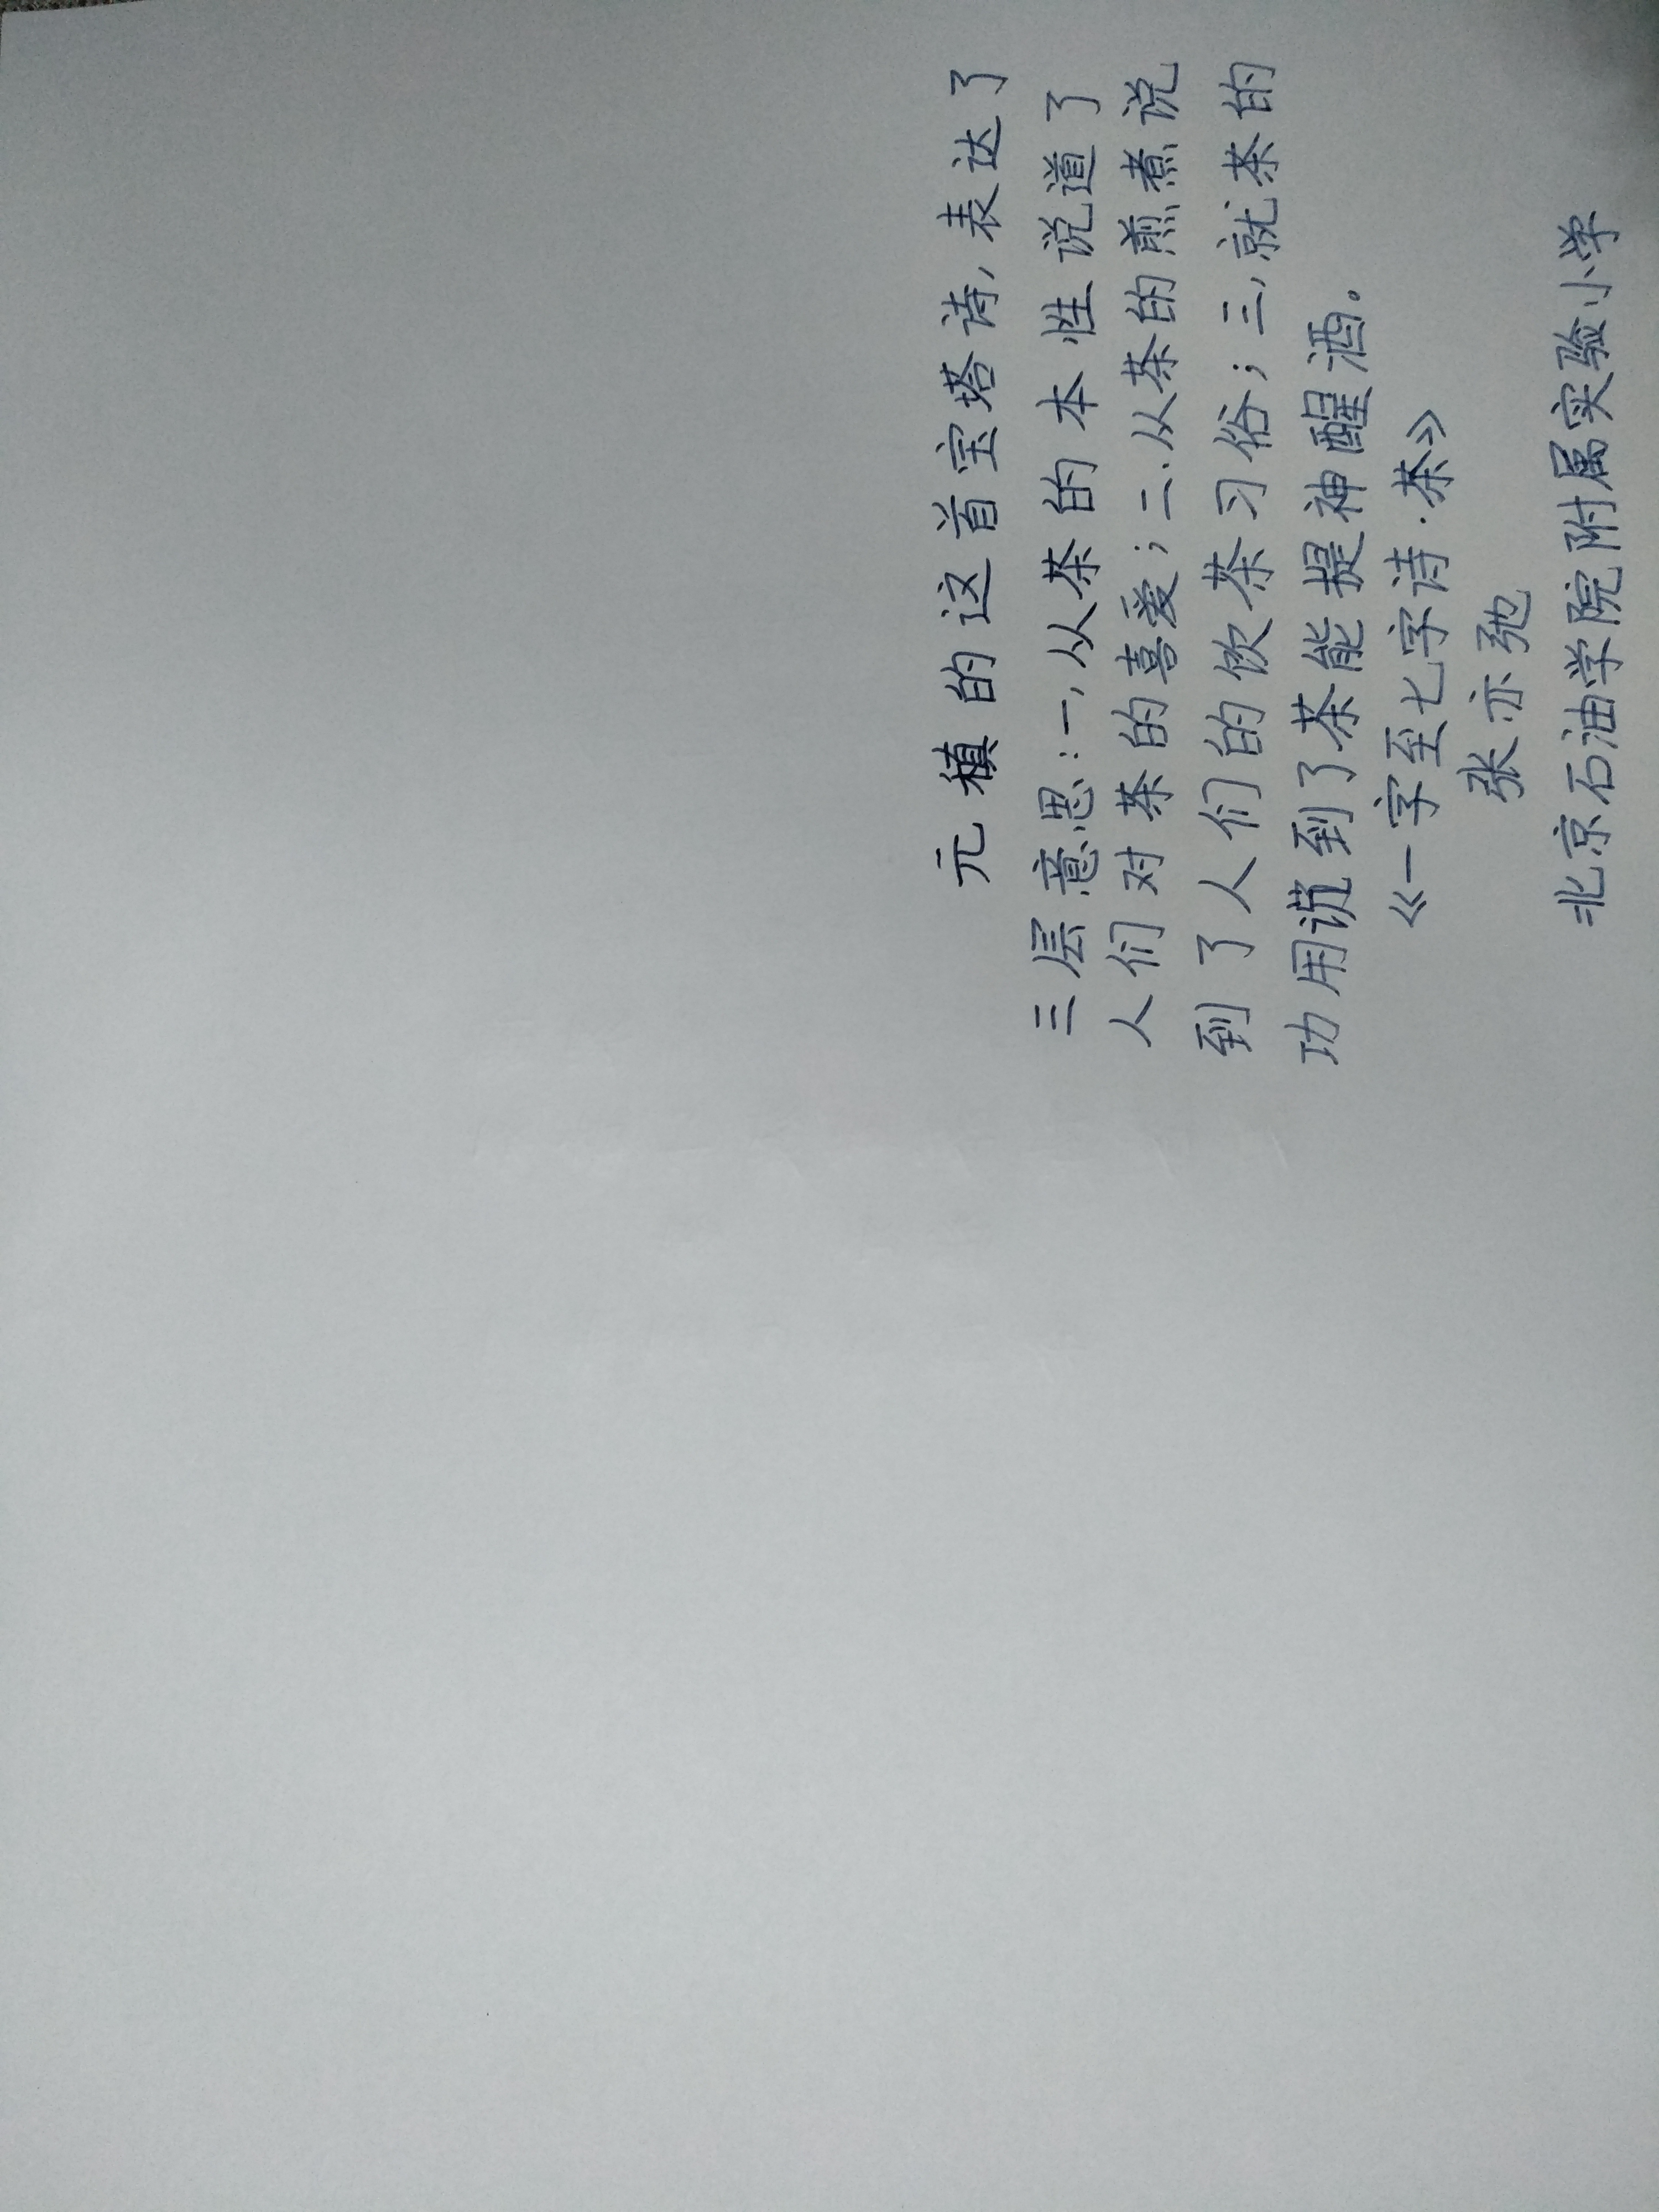 元稹的这首宝塔诗,表达了
三层意思:一,从茶的本性说道了
人们对茶的喜爱;二.从茶的煎煮说
到了人们的饮茶习俗;三,就茶的
功用说到了茶能提神醒酒。
《一字至七字诗·茶》
张亦弛
北京石油学院附属实验小学